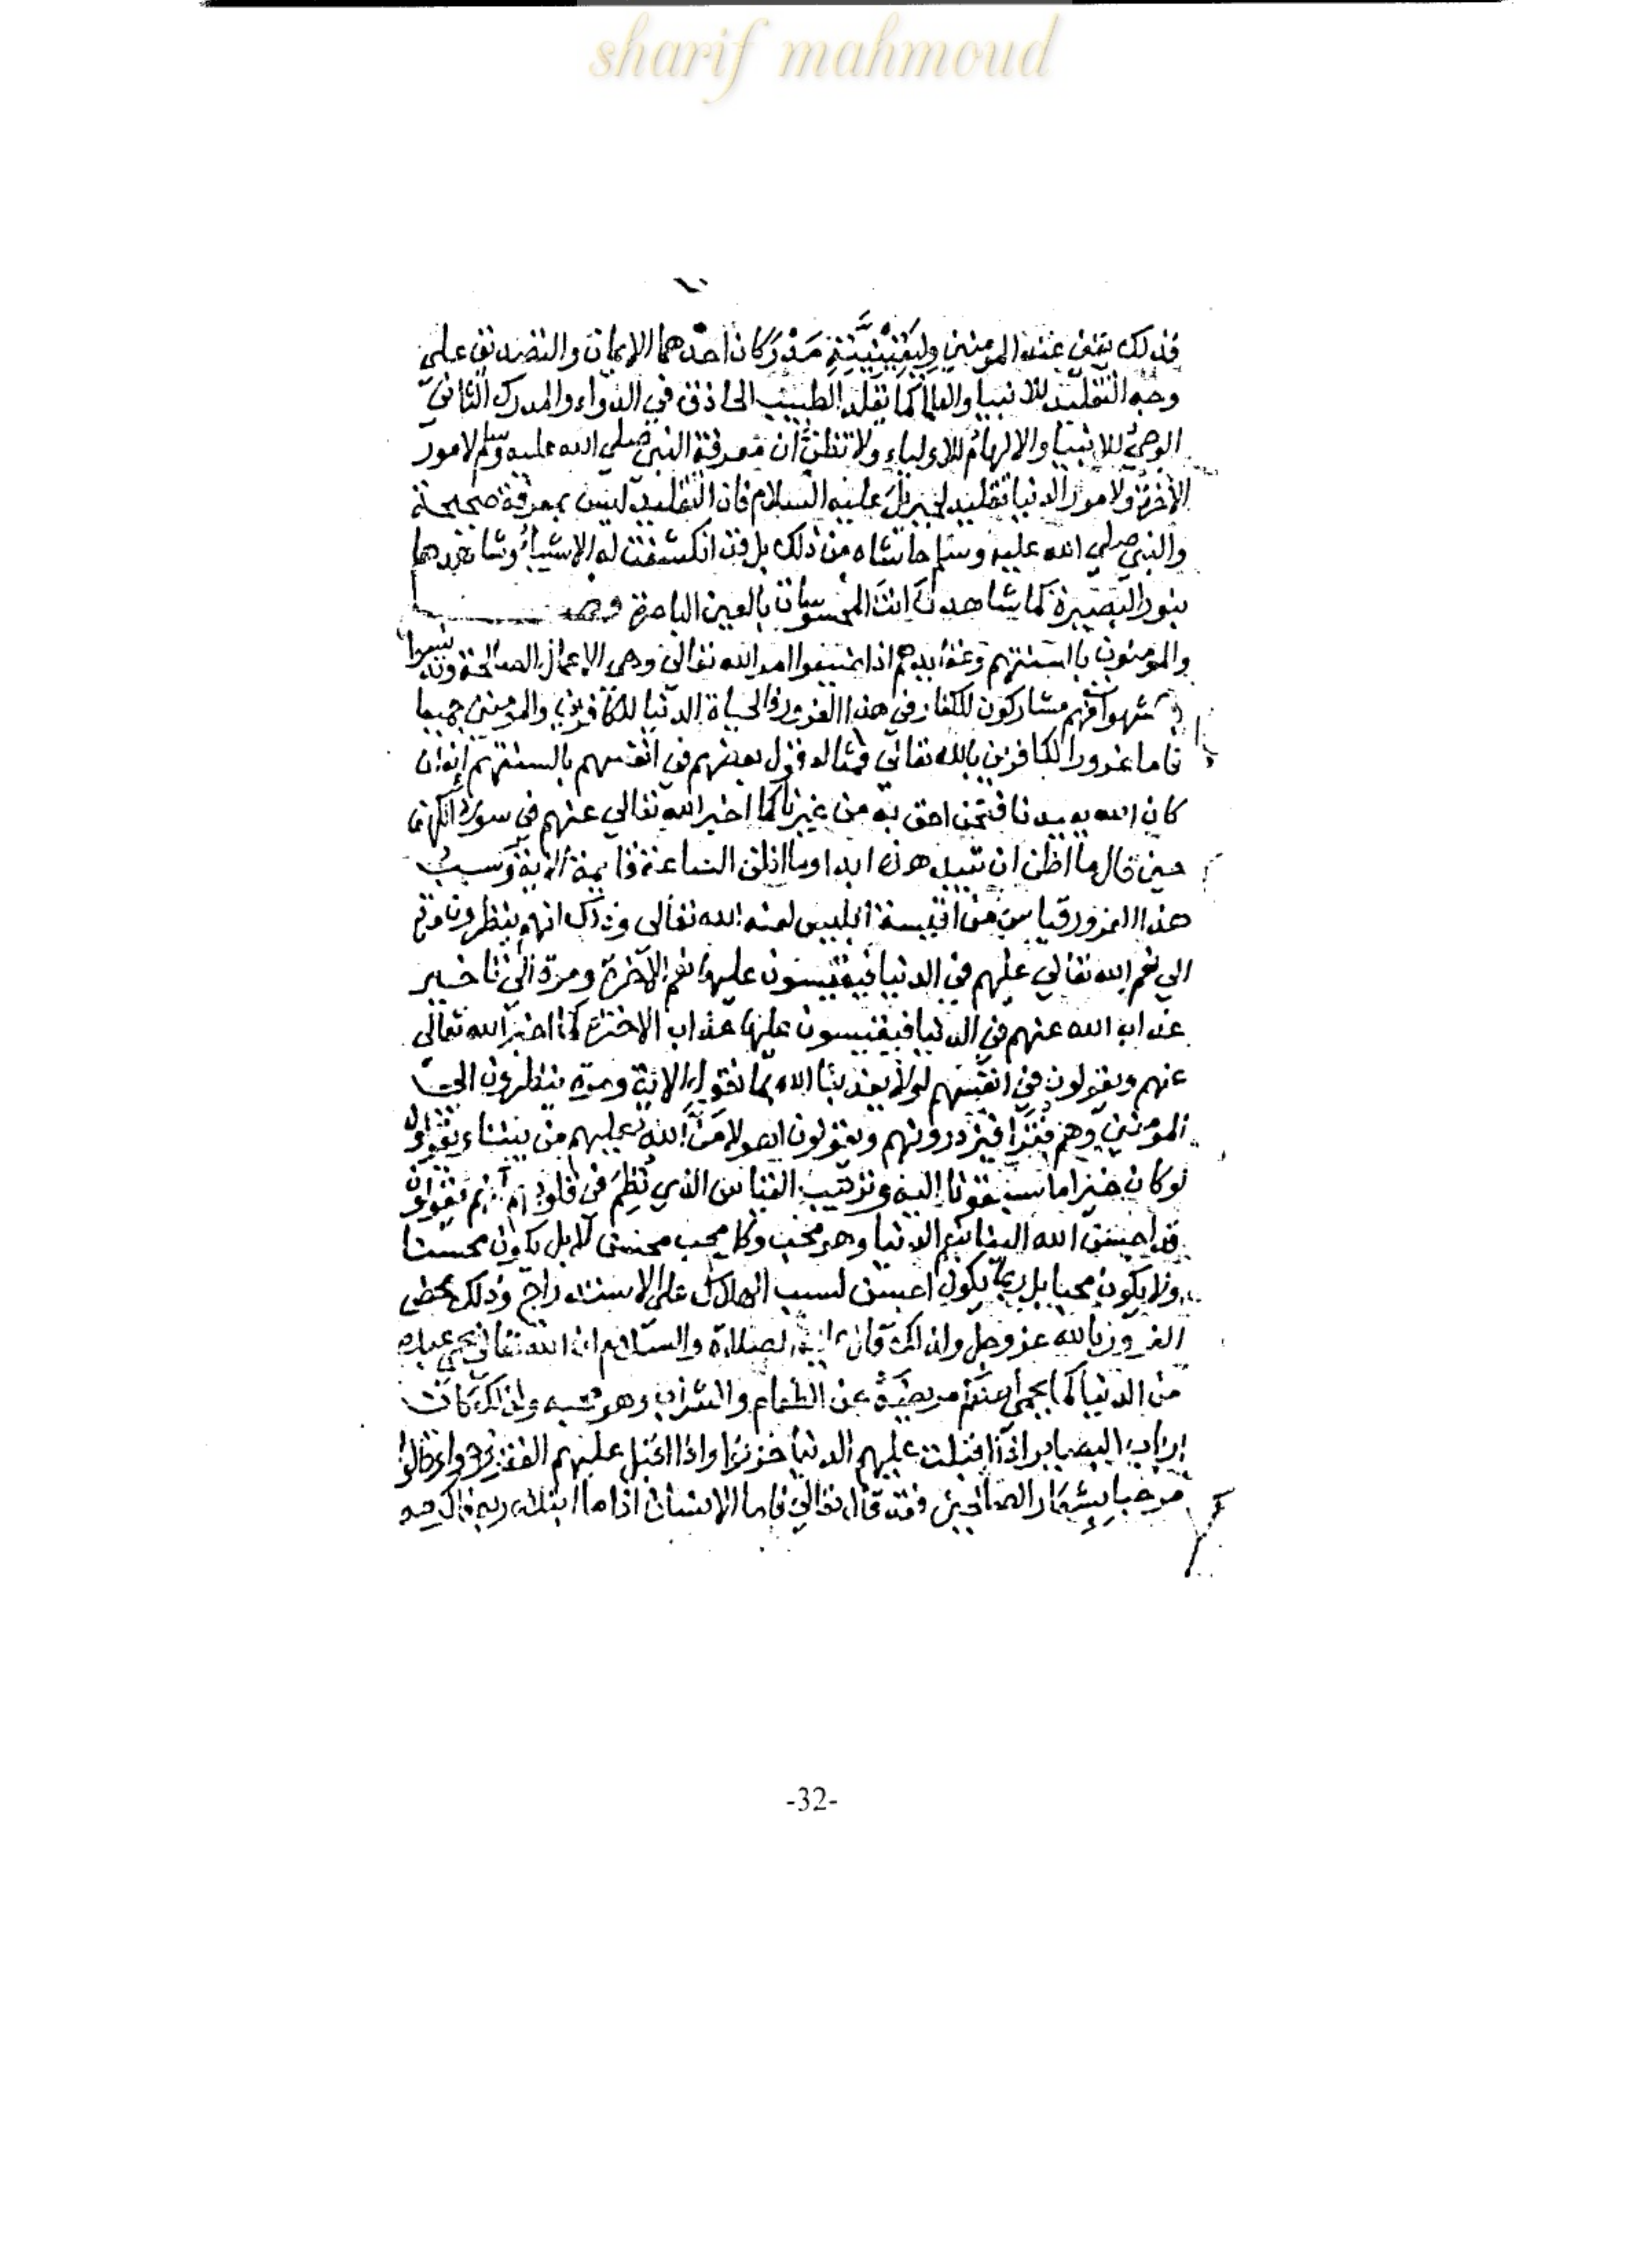 sharif mahmoud
فذلك يقين عند المومنين وليقينيته مدركان احدهما الايمان والتصديق علي
وجه التقليد للانبيا والعلما كما تقلد الطبيب الحاذق في الدواء والمدرك الثاني
الوحي للانبيا والالهام للاولياء ولا تظن ان معرفة النبي صلي الله عليه وسلم لامور
الآخرة ولامور الدنيا تقليد لجبريل عليه السلام فان التقليد ليس بمعرفة صحيحة
والنبي صلي الله عليه وسلم حاشاه من ذلك بل قد انكشفت له الاشياء وشاهدها
بنور البصيرة كما شاهدت انت المحسوسات بالعين الباصرة فصل
والمومنون بالسنتهم وعقايدهم اذا ضيعوا امر الله تعالى وهي الاعمال الصالحة
مشاركون للكفار في هذا الغرور فالحياة الدنيا للكافرين والمومنين جميعا
فاما غرور الكافرين بالله تعالى فمثاله قول بعضهم في انفسهم بالسنتهم انه ان
كان الله يعيدنا فنحن احق به من غيرنا كما اخبر الله تعالي عنهم في سورة الكهف
حين قال ما اظن ان تبيد هذه ابدا وما اظن الساعة قايمة الاية وسبب
هذا الغرور قياس من اقيسة ابليس لعنه الله تعالى وذلك انهم ينظرون مرة
الي نعم الله تعالي عليهم في الدنيا فيقيسون عليها نعم الآخرة ومرة الى تاخير
عذاب الله عنهم في الدنيا فيقيسون عليها عذاب الاخرة كما اخبر الله تعالى
عنهم ويقولون في انفسهم لولا يعذبنا الله بما نقول الاية ومرة ينظرون الى
المومنين وهم فقرا فيزدرونهم ويقولون اهولا من الله عليهم من بيننا ويقولون
لو كان خيرا ما سبقونا اليه وترتيب القياس الذي نظم في قلوبهم انهم يقولون
قد احسن الله الينا بنعم الدنيا وهو محب وكل محب محسن كلا بل يكون محسنا
ولا يكون محبا بل ربما يكون احسن لسبب الهلاك على الاستدراج وذلك محض
الغرور بالله عز وجل ولذلك قال عليه الصلاة والسلام ان الله تعالى يحمي عبده
من الدنيا كما يحمي احدكم مريضه عن الطعام والشراب وهو يحبه ولذلك كانت
ارباب البصاير اذا اقبلت عليهم الدنيا حزنوا واذا اقبل عليهم الفقر فرحوا وقالوا
مرحبا بشعار الصالحين فقد قال تعالى فاما الانسان اذا ما ابتلاه ربه فاكرمه
-32-